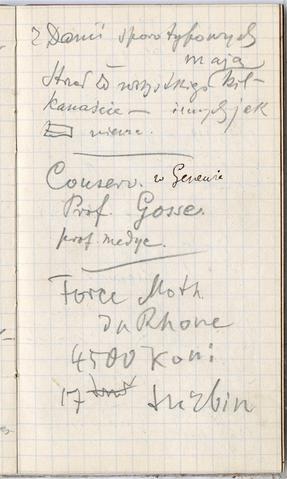 z Dani sporotypowych
mają
wszystkiego kil-
kanaście – innych jak
wiersz.
Conserv. w Genewie
Prof. Gosse.
prof. medyc.
Force Moth.
du Rhone
4500 Koni
17 turbin